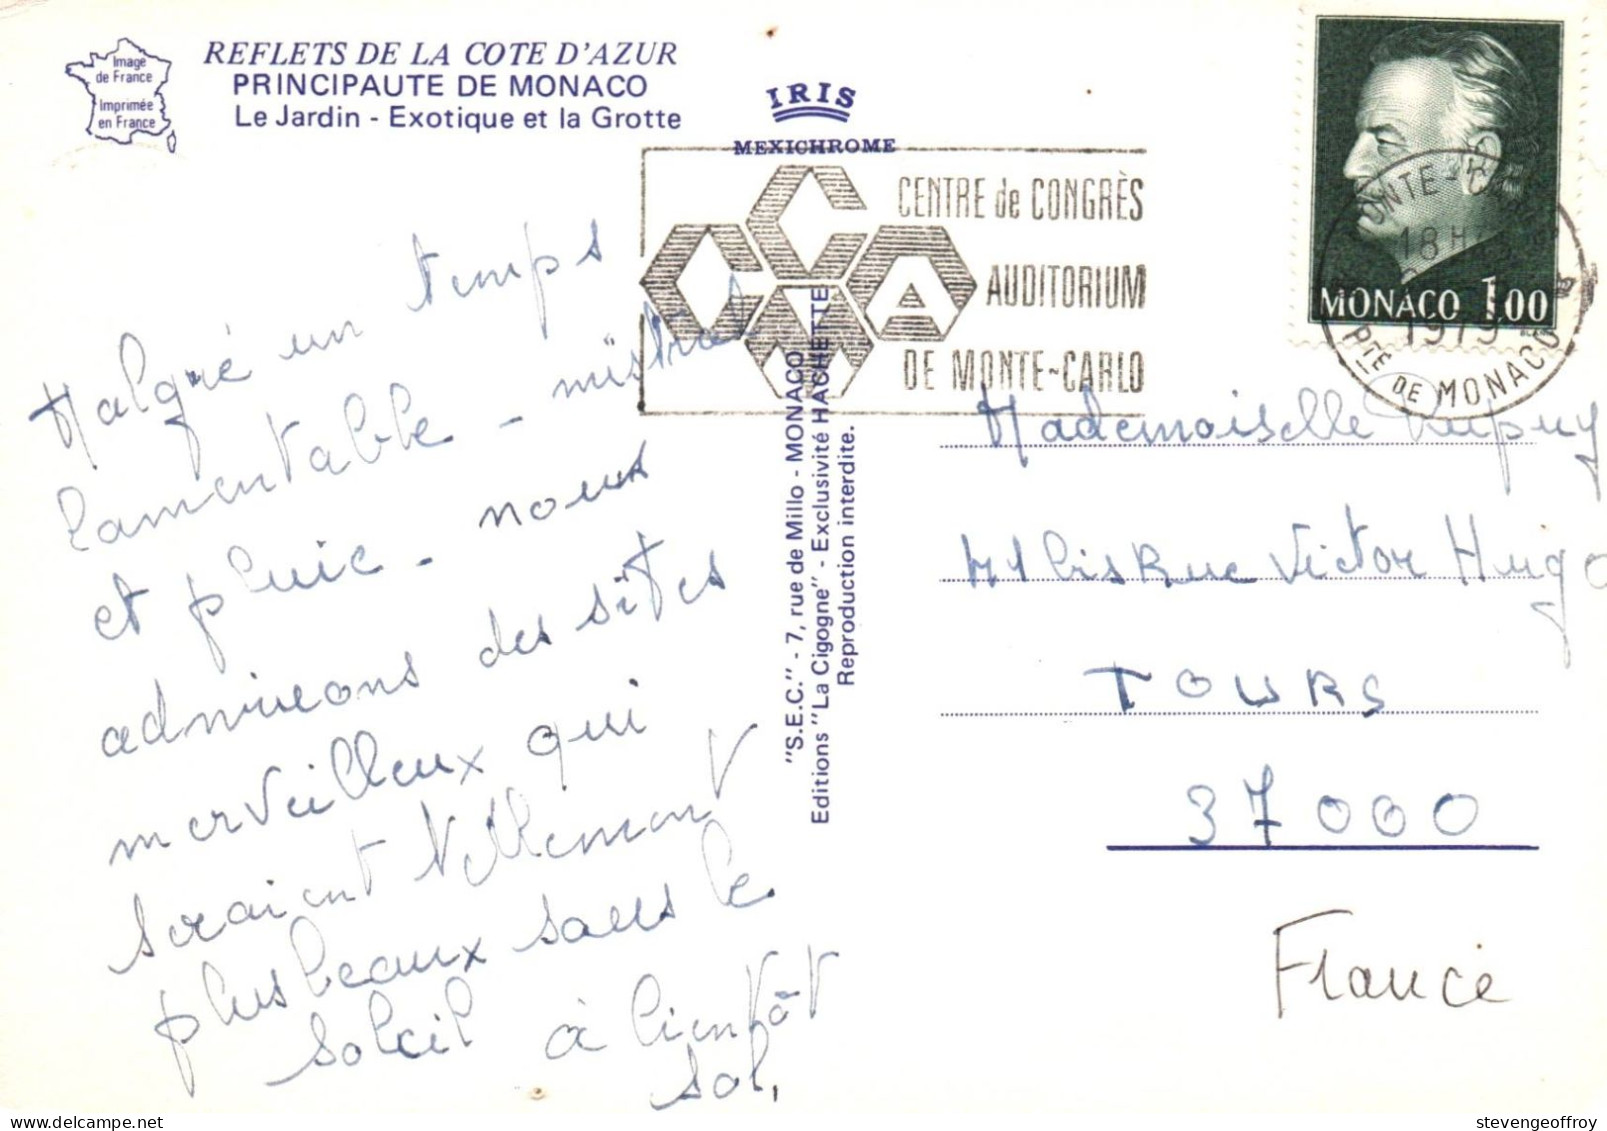 Image
de France
Imprimée
en France
REFLETS DE LA COTE D'AZUR
PRINCIPAUTE DE MONACO
Le Jardin - Exotique et la Grotte
IRIS
MEXICHROME
CENTRE de CONGRÈS
AUDITORIUM
DE MONTE-CARLO
MONACO 1.00
MONTE-CARLO
18 H
1979
PTÉ DE MONACO
Malgré un temps
lamentable - mistral
et pluie - nous
admirons des sites
merveilleux qui
seraient tellement
plus beaux sous le
soleil à bientôt
"S.E.C." - 7, rue de Millo - MONACO
Editions "La Cigogne" - Exclusivité HACHETTE
Reproduction interdite.
Mademoiselle Dupuy
41 bis Rue Victor Hugo
TOURS
37000
France
stevengeoffroy